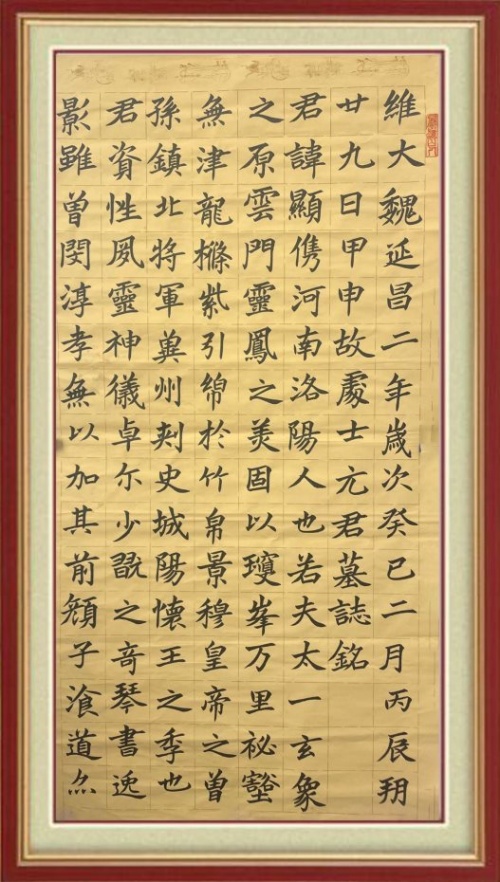 維大魏延昌二年歲次癸巳二月丙辰朔
廿九日甲申故處士元君墓誌銘
君諱顯儁河南洛陽人也若夫太一玄象
之原雲門靈鳳之美固以瓊峯万里祕壑
無津龍檦紫引綿於竹帛景穆皇帝之曾
孫鎮北將軍冀州刺史城陽懷王之季也
君資性夙靈神儀卓尒少翫之奇琴書逸
影雖曾閔淳孝無以加其前顏子湌道亦